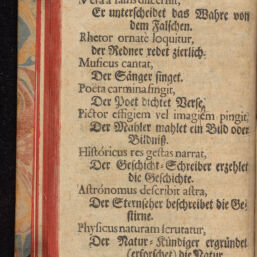 Vera à falsis discernit,
Er unterscheidet das Wahre von
dem Falschen.
Rhetor ornatè loquitur,
der Redner redet zierlich.
Musicus cantat,
Der Sänger singet.
Poëta carmina fingit,
Der Poet dichtet Verse,
Pictor effigiem vel imaginem pingit,
Der Mahler mahlet ein Bild oder
Bildniß.
Históricus res gestas narrat,
Der Geschicht-Schreiber erzehlet
die Geschichte.
Astrónomus describit astra,
Der Sternseher beschreibet die Ge-
stirne.
Physicus naturam scrutatur,
Der Natur-Kündiger ergründet
(erforschet) die Natur